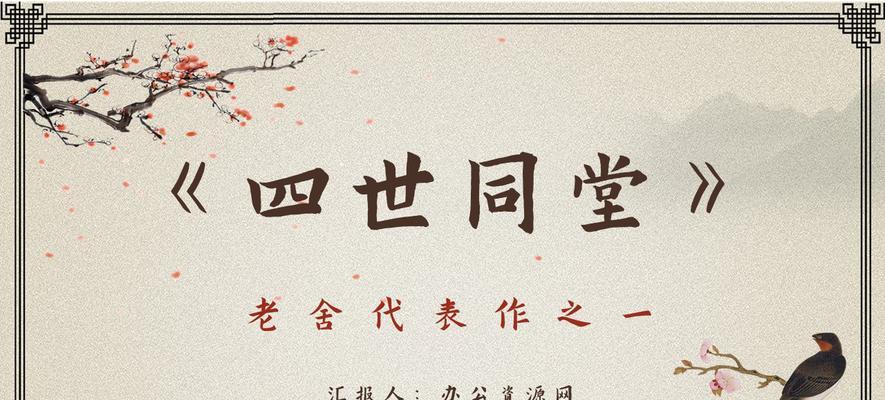 《四世同堂》
老舍代表作之一
汇报人：办公資源网